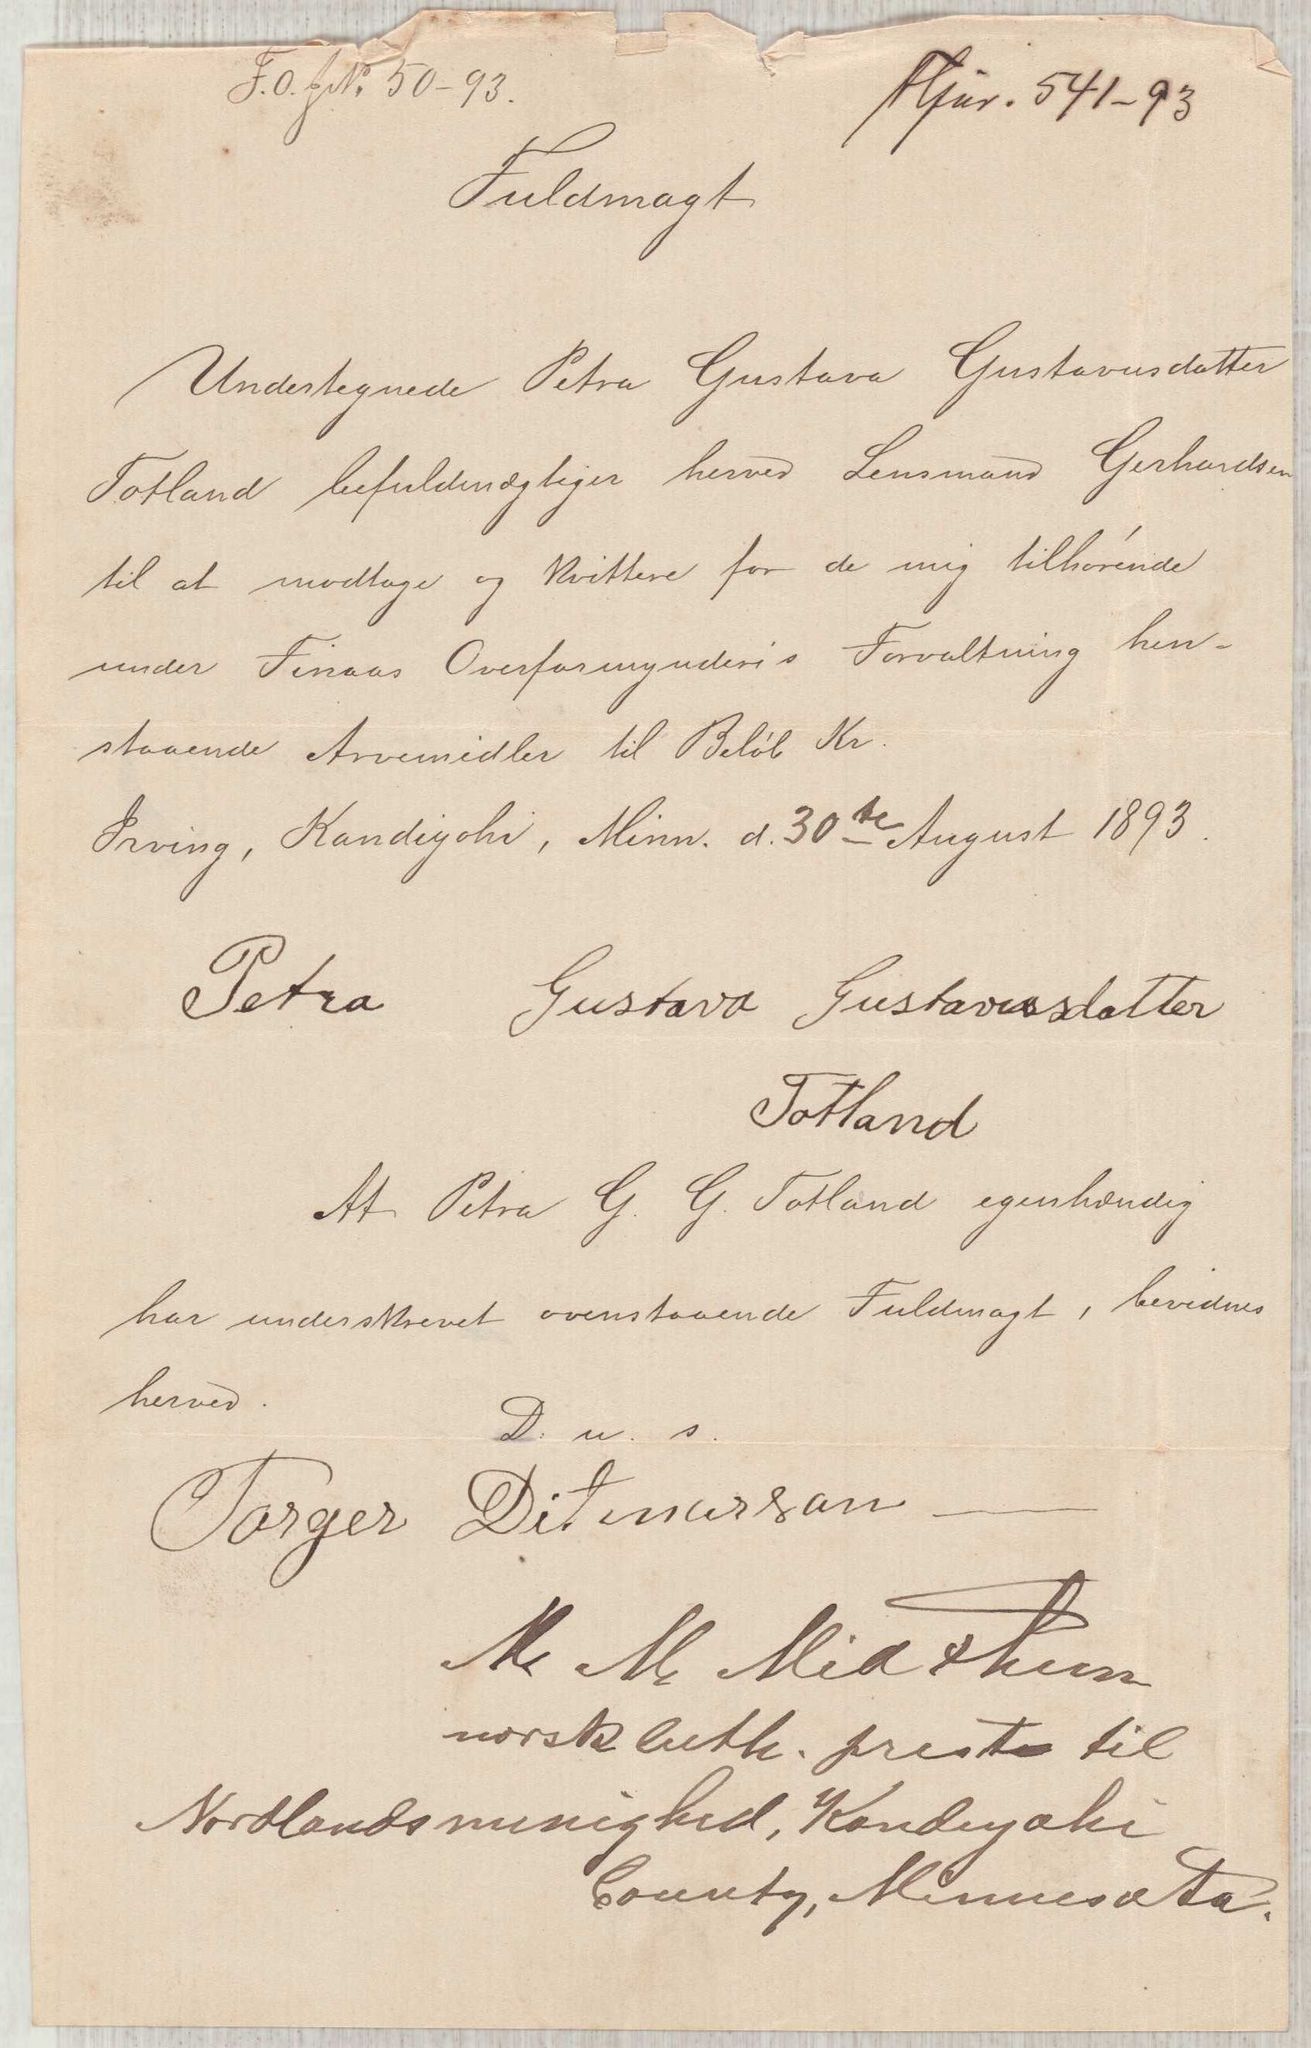 F.O. jN. 50-93.
541-93
Fuldmagt
Undertegnede Petra Gustava Gustavusdatter
Totland befuldmægtiger herved Lensmand Gerhardsen
til at modtage og kvittere for de mig tilhörende
under Finaas Overformynderis Forvaltning hen-
staaende Arvemidler til Belöb Kr.
Irving, Kandiyohi, Minn. d. 30te August 1893.
Petra Gustava Gustavusdatter
Totland
At Petra G. G. Totland egenhændig
har underskrevet ovenstaaende Fuldmagt, bevidnes
herved.
D. u. s.
Torger Ditmarson
M. M. Midthun
norsk luth. prest til
Nordlandsmenighed, Kandiyohi
County, Minnesota.